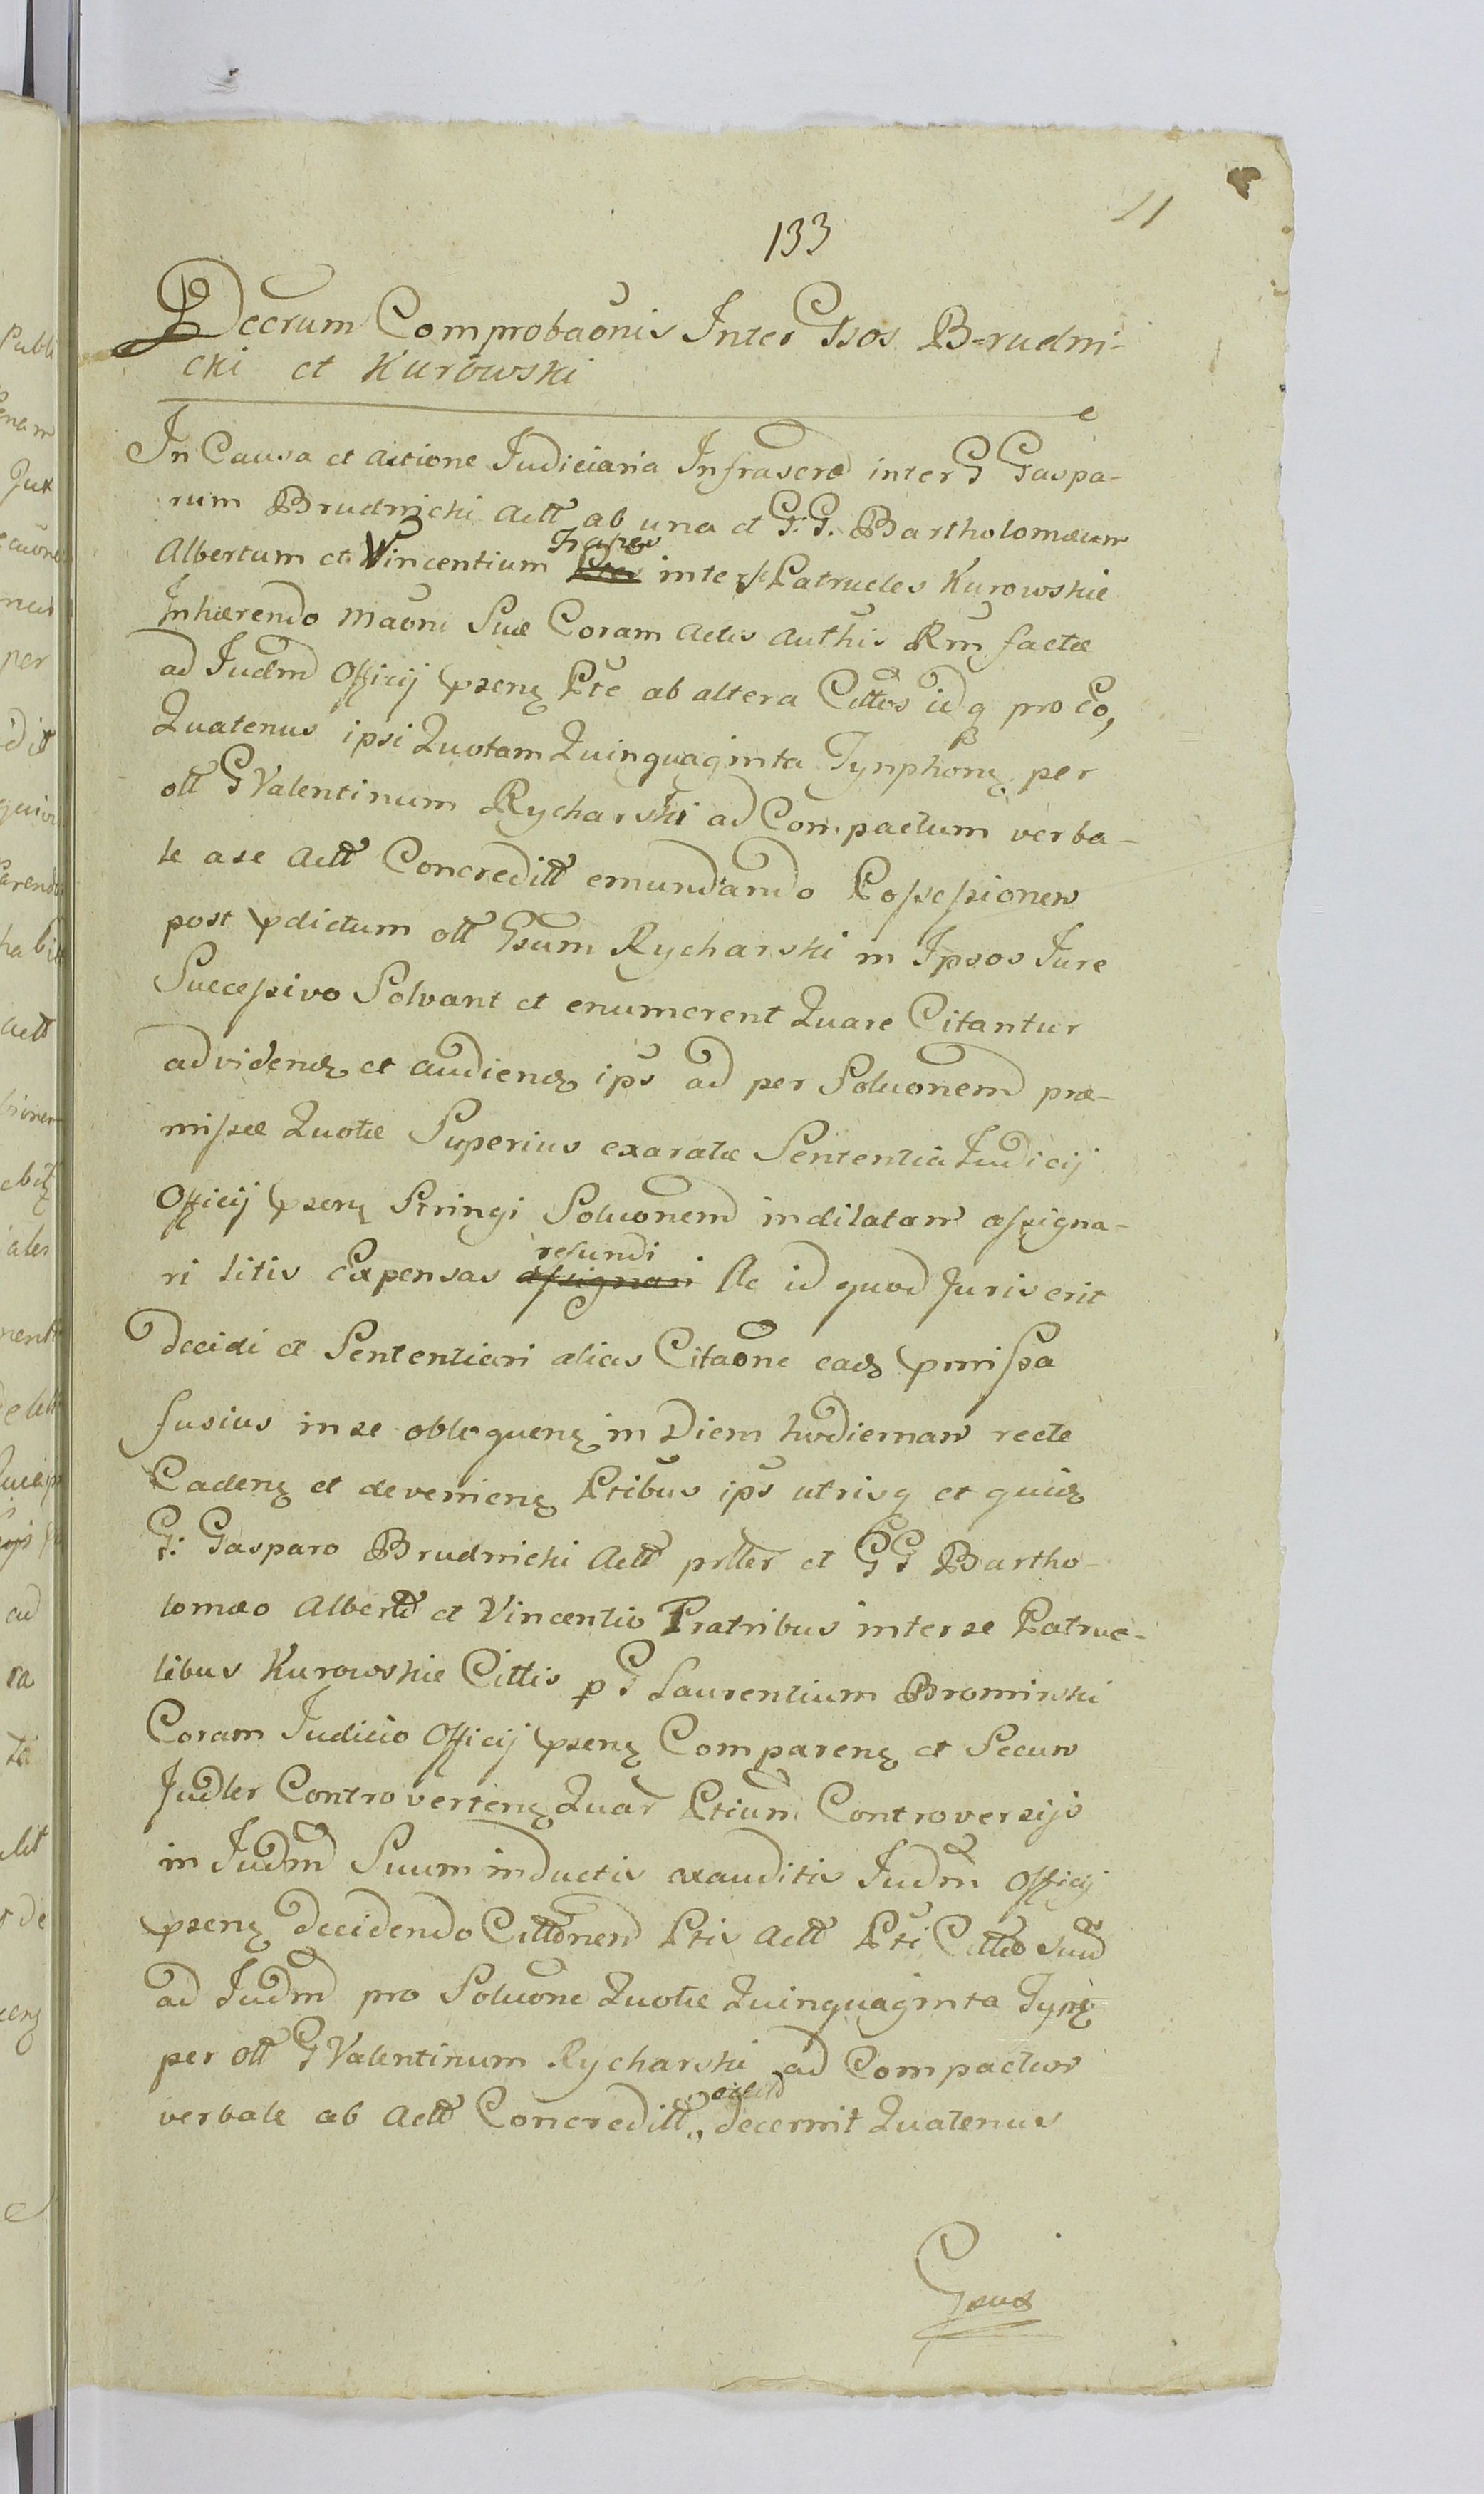 133
11
Decrum Comprobaonis Inter Gsos Brudni-
cki et Kurowski
In Causa et actione Judiciaria Infrascrd inter G Gaspa-
rum Brudnicki Actt ab una et G.G. Bartholomæum
Albertum et Vincentium Fratres inter se Patrueles Kurowskie
Inhærendo Maoni Suæ Coram Actis Authis Rm factæ
ad Judm Officij psenq Pte ab altera Cittos idq pro Eo,
Quatenus ipsi Quotam Quinquaginta Tynphonq per
olt G Valentinum Rycharski ad Compactum verba-
le a se Actt Concreditt emundando Possessionem
post pdictum olt Gsum Rycharski in Ipsos Jure
Successivo Solvant et enumerent Quare Citantur
ad videnq et audienq ips ad per Soluonem præ-
missæ Quotæ Superius exaratæ Sententia Judicij
Officij psenq Stringi Soluonem indilatam assigna-
ri litis Expensas assignari refundi Ac id quod Juris erit
decidi et Sententiari alias Citaone eadz pmissa
fusius in se obloquenq in Diem hodiernam recte
Cadenq et devenienq Ptibus ips utrisq et quidz
G: Gasparo Brudnicki Actt pntter et GG Bartho-
lomæo Alberto et Vincentio Fratribus inter se Patrue-
libus Kurowskie Cittis p G Laurentium Bromirski
Coram Judicio Officij psenq Comparenq et Secum
Judler Controvertenq Quar Ptium Controversijs
in Judm Suum inductis exauditis Judm Officij
psenq decidendo Cittonem Ptis Actt Pti Cittæ suæ
ad Judm pro Soluone Quotæ Quinquaginta Tynq
per olt G Valentinum Rycharski ad Compactum
verbale ab Actt Concreditt, decernit Quatenus
Gsus